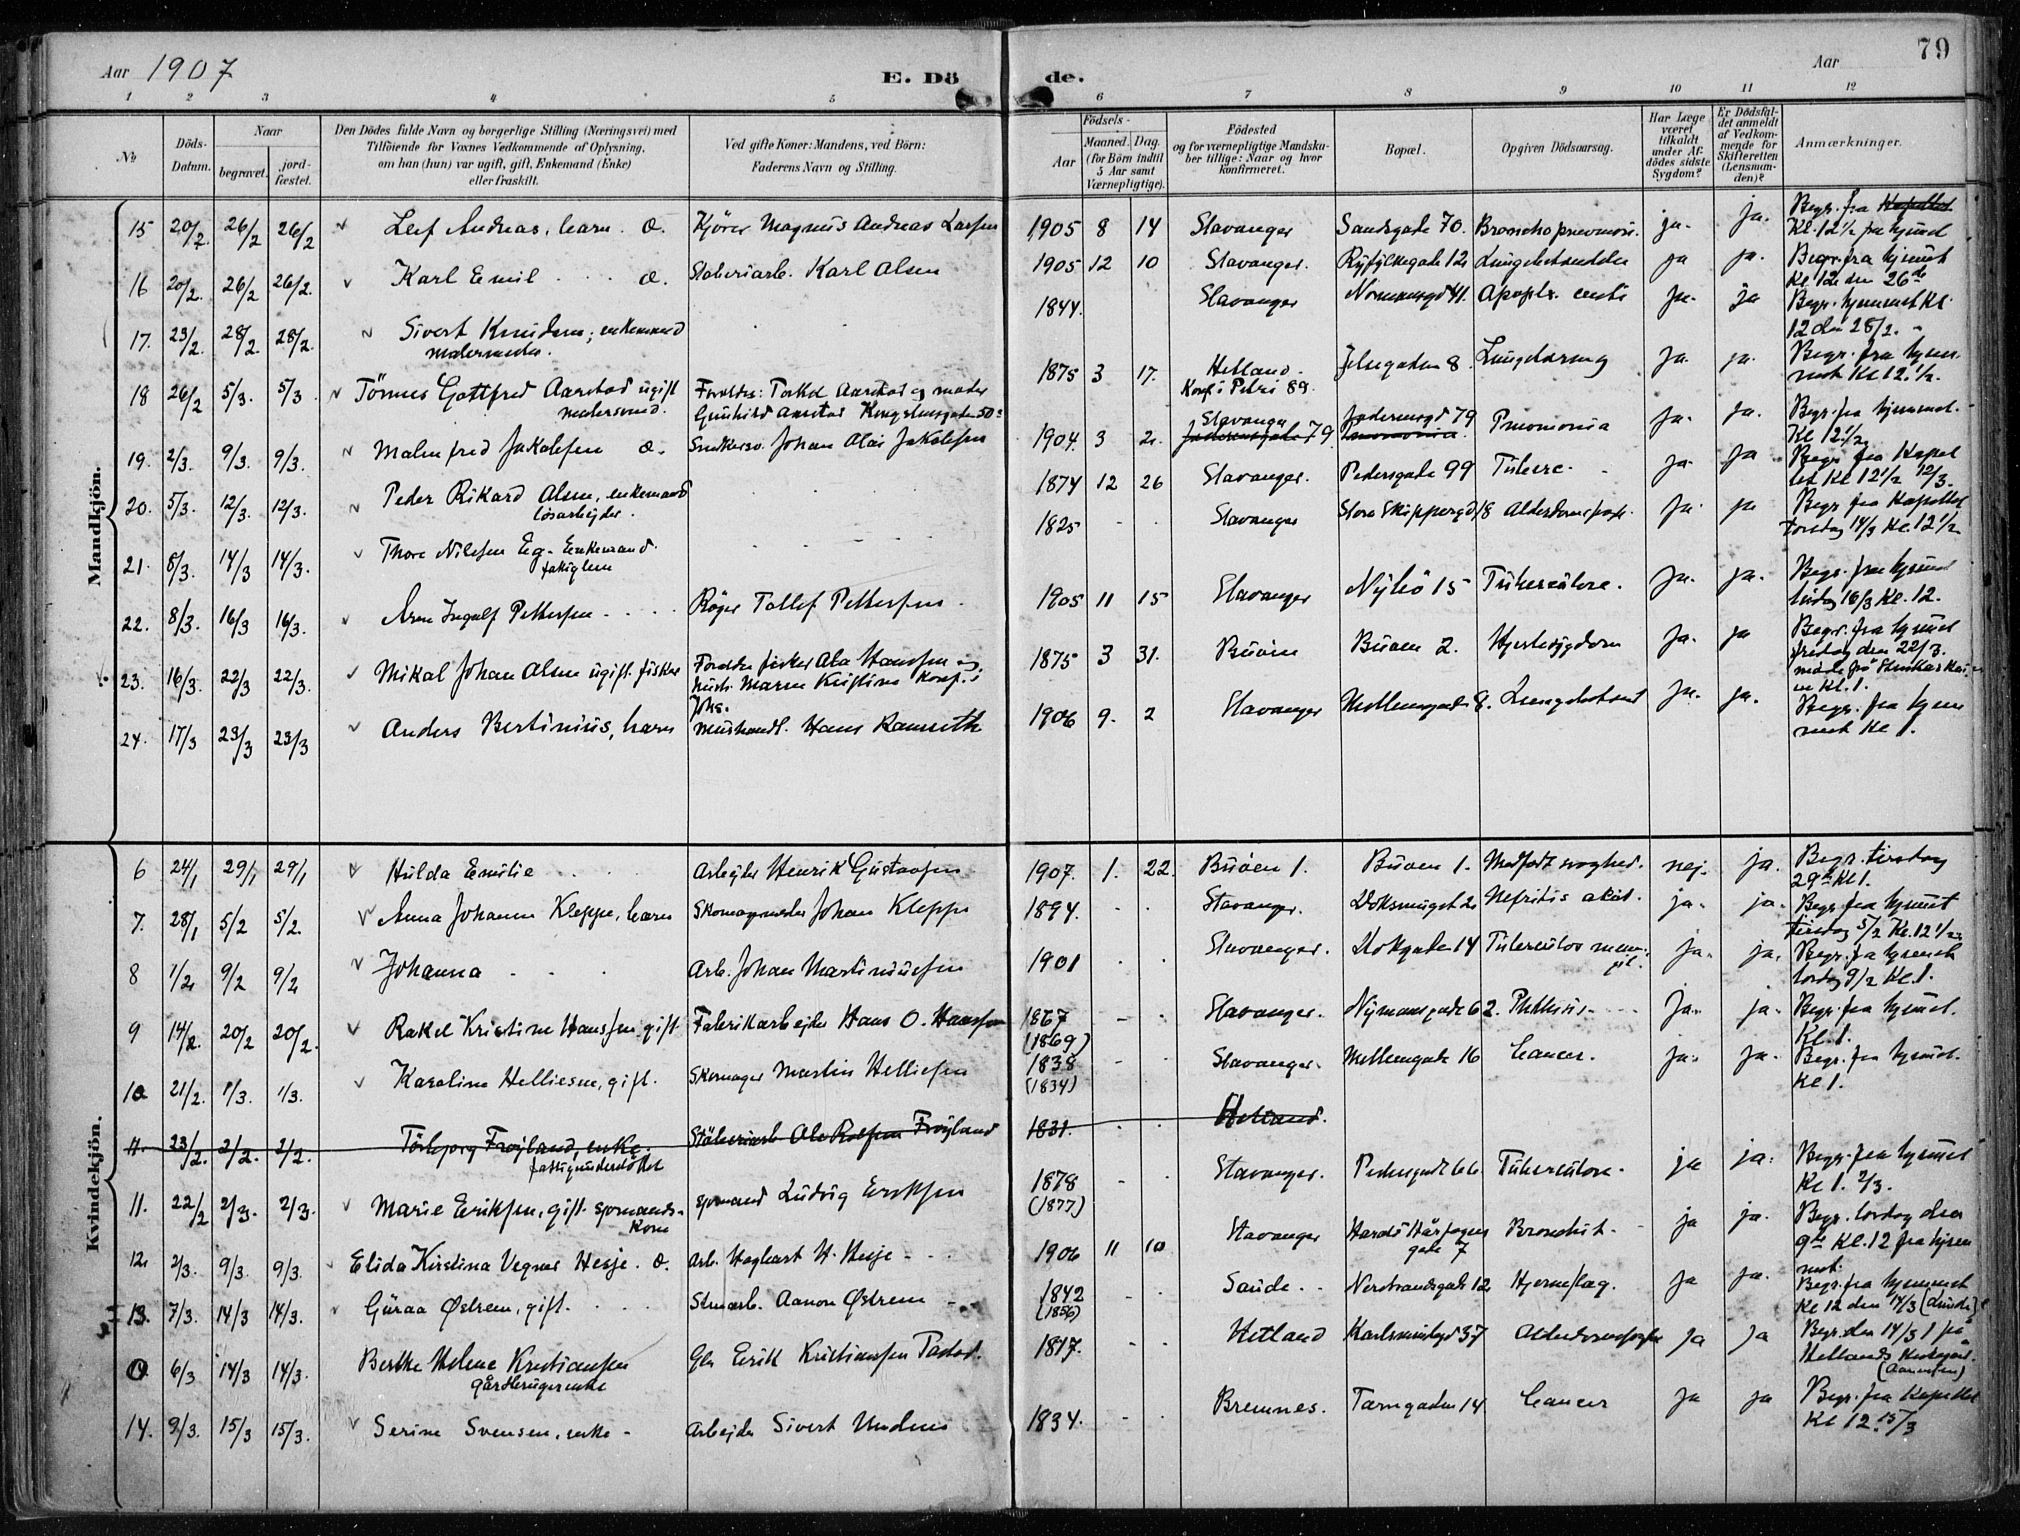 Aar 1907
E. Dö
de.
Aar
79
1 2 3 4 5 6 7 8 9 10 11 12
No
Döds-Datum.
Naar
begravet.
jord-fæstet.
Den Dödes fulde Navn og borgerlige Stilling (Næringsvei) med
Tilföiende for Voxnes Vedkommende af Oplysning,
om han (hun) var ugift, gift, Enkemand (Enke)
eller fraskilt.
Ved gifte Koner: Mandens, ved Börn:
Faderens Navn og Stilling.
Födsels-
Aar
Maaned. Dag.
(for Börn indtil
5 Aar samt
Værnepligtige).
Födested
og for værnepligtige Mandska-
ber tillige: Naar og hvor
konfirmeret.
Bopæl.
Opgiven Dödsaarsag.
Har Læge
været
tilkaldt
under Af-
dödes sidste
Sygdom?
Er Dödsfal-
det anmeldt
af Vedkom-
mende for
Skifteretten
(Lensman-
den)?
Anmærkninger.
Mandkjön.
15 20/2. 26/2 26/2 Leif Andreas, barn. Kjører Magnus Andreas Larsen 1905 8 14 Stavanger Sandsgade 70. Bronchopneumoni. ja. ja. Begr. fra Kapellet
Kl. 12 1/2 fra hjemmet
16 20/2. 26/2 26/2. Karl Emil Karl Olsen 1905 12 10 Stavanger. Ryfylkegade 12 ja ja. Begr. fra hjemmet
Kl. 12 den 26de
17. 23/2. 28/2. 28/2. Sivert Knudsen, enkemand
malermester. 1844. Stavanger 41. Apoplx. ja. ja Begr. hjemmet Kl.
12 den 28/2.
18 26/2 5/3. 5/3. Tönnes Gottfred Aarstad ugift
malersvend. Forældre: Torkel Aarstad og moder
Gunhild Aarstad Kongsteensgaden 50 1875 3 17. Hetland.
Konf. i Petri 89. Jelsegaden 8 ja. ja. Begr. fra hjem-
met Kl 12. 1/2.
19. 2/3. 9/3. 9/3. Malmfred Jakobsen Johan Olai Jakobsen 1904. 3 2. Stavanger
Jaderensgade 79 Jaderensgd 79
Pneumonia Pneumonia ja. ja. Begr. fra hjemmet.
Kl 12 1/2
20. 5/3. 12/3. 12/3. Peder Rikard Olsen, enkemand
løsarbejder. 1874 12 26 Stavanger. Pedersgade 99 Tuberc. ja. ja Begr. fra Kapel
let Kl 12 1/2 12/3.
21. 8/3. 14/3 14/3. Thore Nilsen Eg. Enkemand.
fattiglem 1825 Stavanger Store Skippergd 18 ja. ja Begr. fra Kapellet
torsdag 14/3 Kl. 12 1/2
22. 8/3. 16/3 16/3. Arne Ingolf Pettersen Røger Tollef Pettersen. 1905 11 15 Stavanger Nybö 15 Tuberculose. ja. ja. Begr. fra hjemmet
lørdag 16/3 Kl. 12.
23. 16/3. 22/3 22/3. Mikal Johan Olsen ugift. fisker Forældre fisker Ola Hanssen og
hustr. Maren Kristine Konf. i
Johs. 1875 3 31. Buöen Buöen 2. Hjertesygdom ja. ja Begr. fra hjemmet
fredag den 22/3.
Kl. 1.
24. 17/3 23/3 23/3 Anders Bertinius, barn Hans Ramseth 1906 9. 2 Stavanger Møllergade 8. ja. ja. Begr. fra hjem
met Kl 1.
Kvindekjön.
6 24/1 29/1 29/1 Hulda Emilie Arbejder Henrik Gustavsen 1907. 1. 22. Buöen 1. Buöen 1. Medfødt svaghed. nej. ja. Begr. tirsdag
29de Kl 1.
7. 28/1 5/2 5/2. Anna Johanne Kleppe, barn Skomagermester Johan Kleppe 1894. Stavanger. Nefritis akut. ja. ja. Begr. fra hjemmet
tirsdag 5/2 Kl. 12 1/2
8 1/2 9/2 9/2 Johanna Arb. Johan Martiniussen 1901 Stavanger. Kokgade 14 ja. ja. Begr. fra hjemmet
lørdag 9/2 Kl. 1.
9 14/2. 20/2 20/2. Rakel Kristine Hanssen gift. Fabrikarbejder Hans O. Hanssen 1867
(1869) Stavanger. Nymansgade 62. Phthisis. ja. ja. Begr. fra hjemmet.
Kl. 1.
10 21/2. 1/3. 1/3. Karoline Helliesen, gift. Skomager Martin Helliesen 1838
(1834) Stavanger. Møllergade 16 Cancer. ja. ja. Begr. fra hjemmet.
Kl 1.
11. 23/2. 2/2. 2/2. Torborg Frøyland, enke.
fattigunderstøttet Frøyland 1831. Hetland.
11. 22/2 2/3. 2/3. Marie Eriksen, gift. sømands-
Kone sømand Ludvig Eriksen 1878
(1877) Stavanger. Pedersgade 66 Tuberculose. ja ja. Begr. fra hjemmet
Kl 1. 2/3.
12. 2/3. 9/3. 9/3. Elida Kirstina Vegner Hesje. Arb. Hagbart H. Hesje 1906 11 10 Stavanger Harald Hårfagers
gade 7 Bronchit. ja ja. Begr. lørdag den
9de Kl. 12 fra hjem
met.
13. 7/3. 14/3 14/3. Guraa Østrem, gift. Aanon Østrem 1842
(1856) Saude. Nerstrandsgade 12 Hjerneslag. ja ja. Begr. fra hjemmet
Kl 12 den 14/3
0 6/3 14/3 14/3. Berthe Helene Kristiansen
gårdbrugerenke Erik Kristiansen 1817. Hetland 37 ja ja Begr. den 14/3 1 på
Hetlands Kirkegård.
14. 9/3. 15/3 15/3. Serine Svensen, enke. Arbejder Sivert 1834. Bremnes. Tarngaden 14 Cancer ja ja Begr. fra Kapellet
Kl 12. 15/3